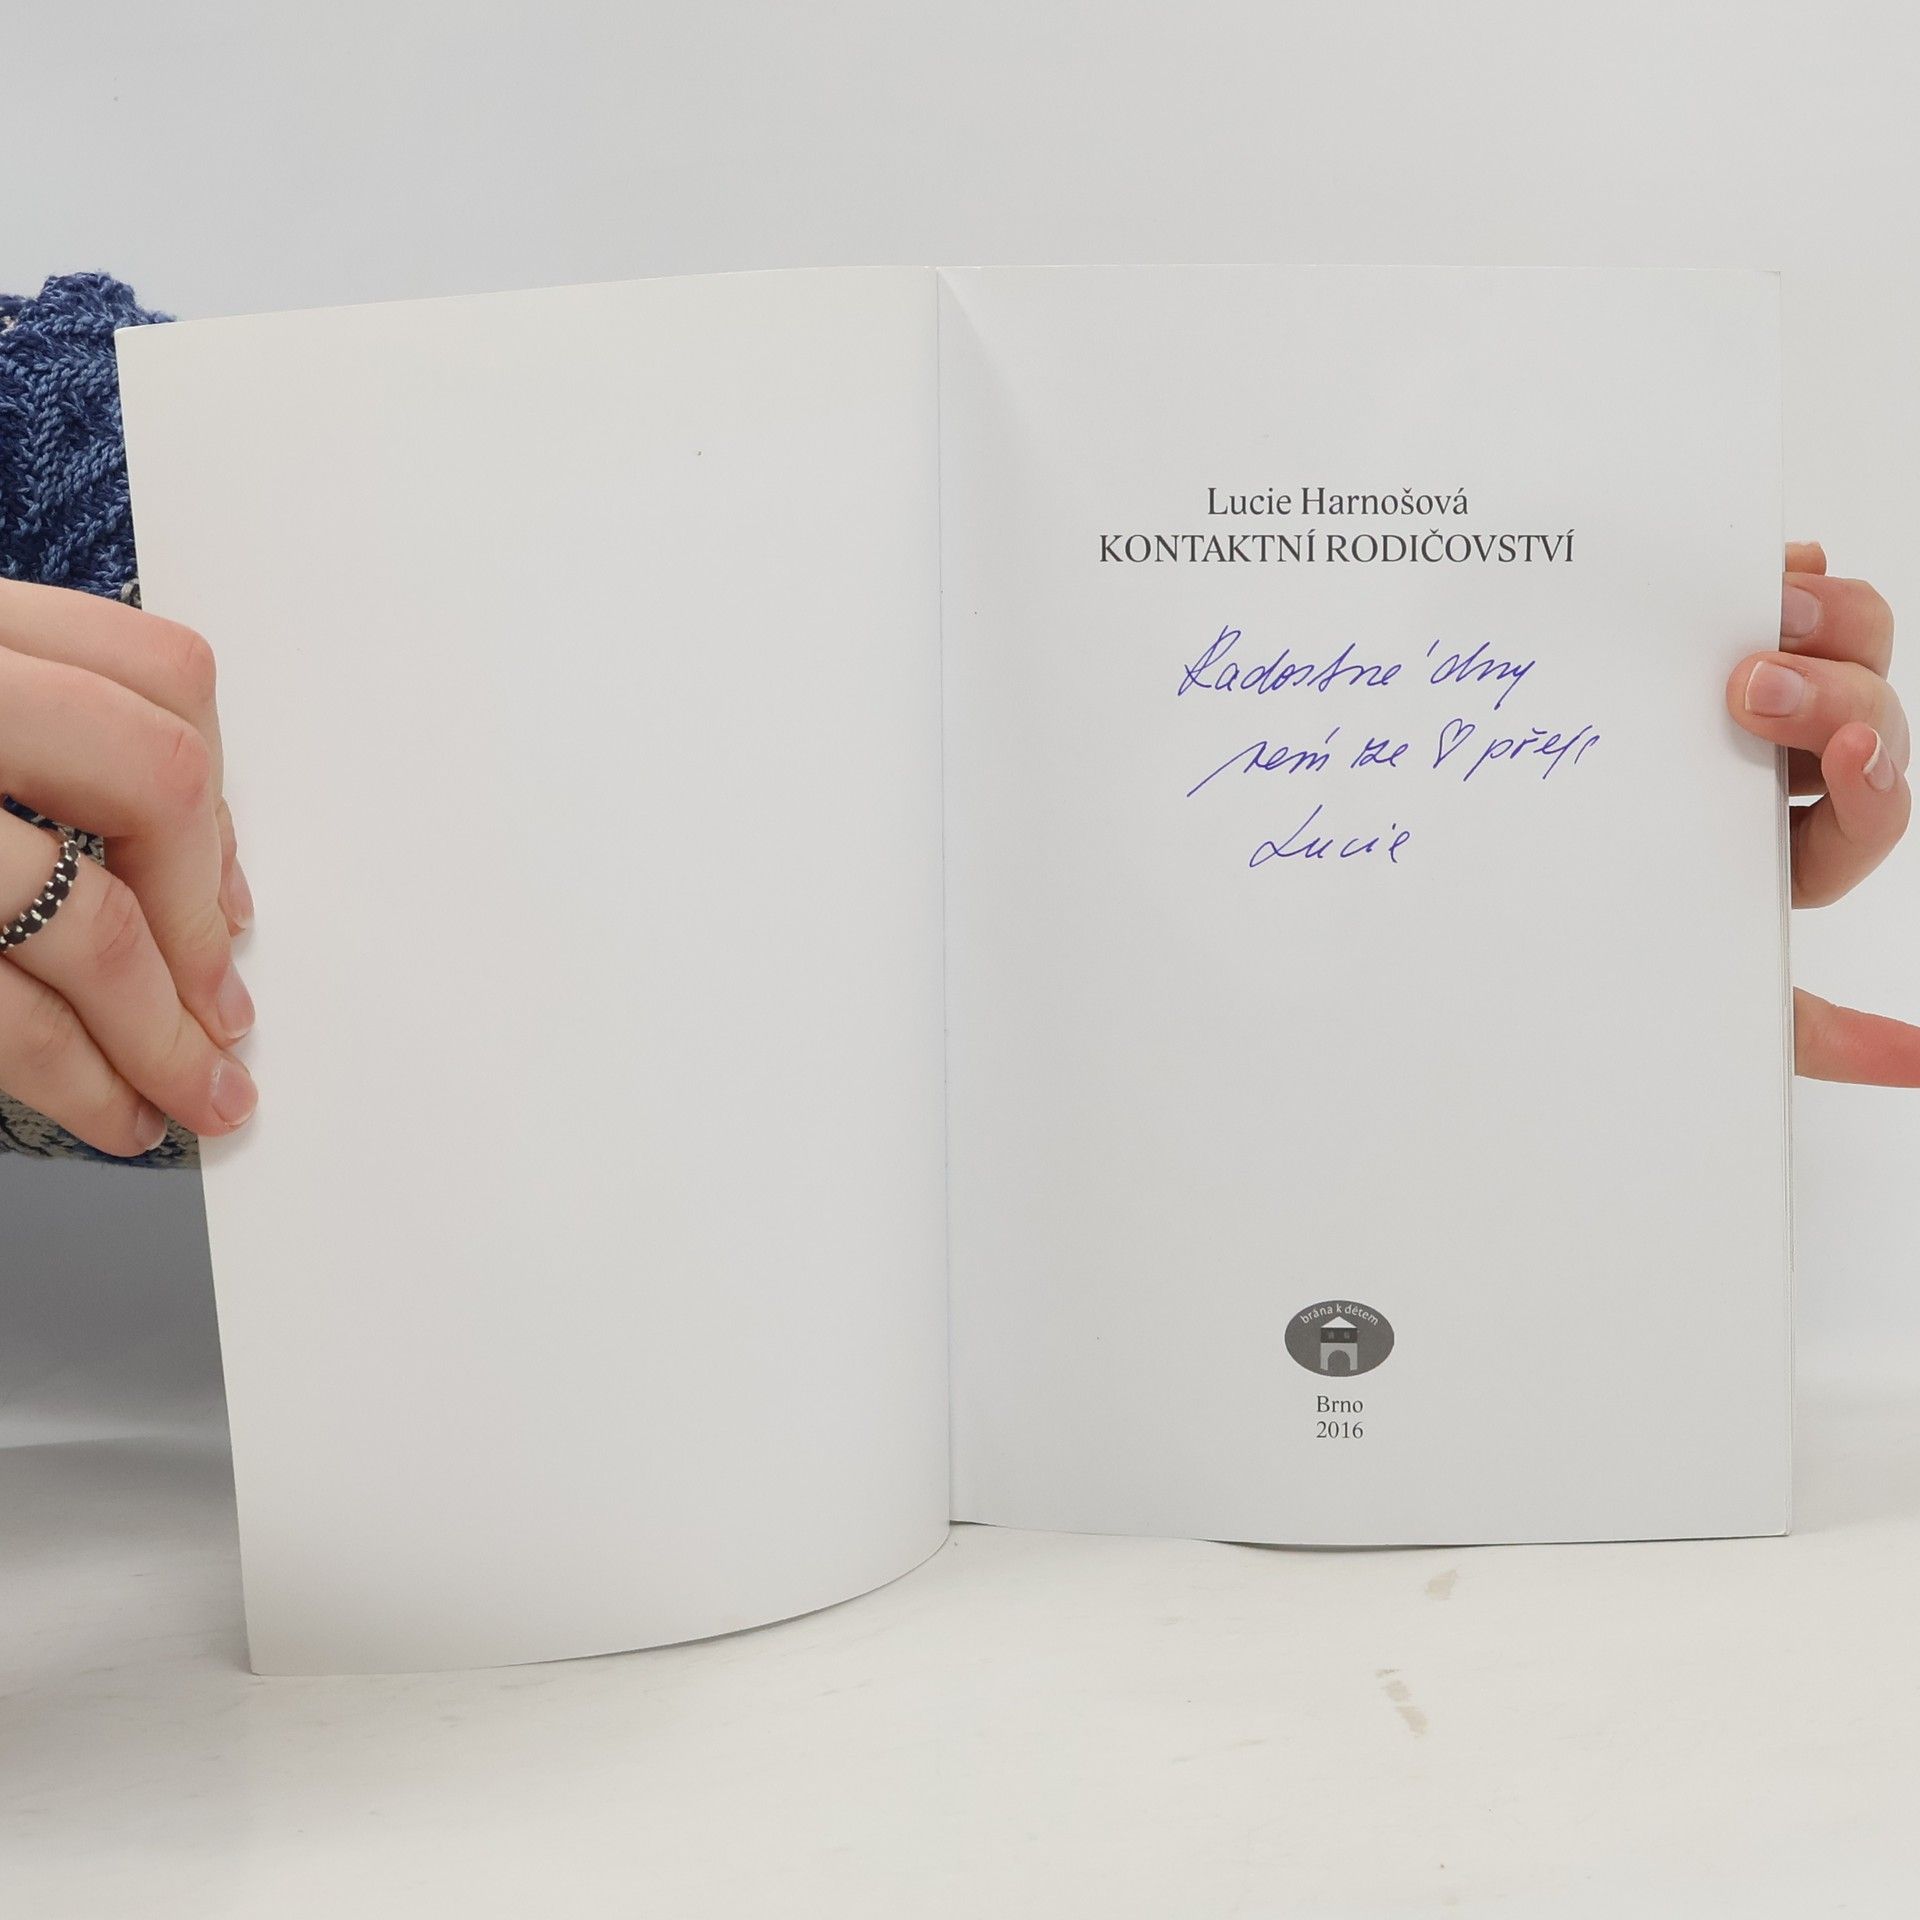 Lucie Harnošová
KONTAKTNÍ RODIČOVSTVÍ
Radostné dny
ze ♡ přeje
Lucie
brána k dětem
Brno
2016